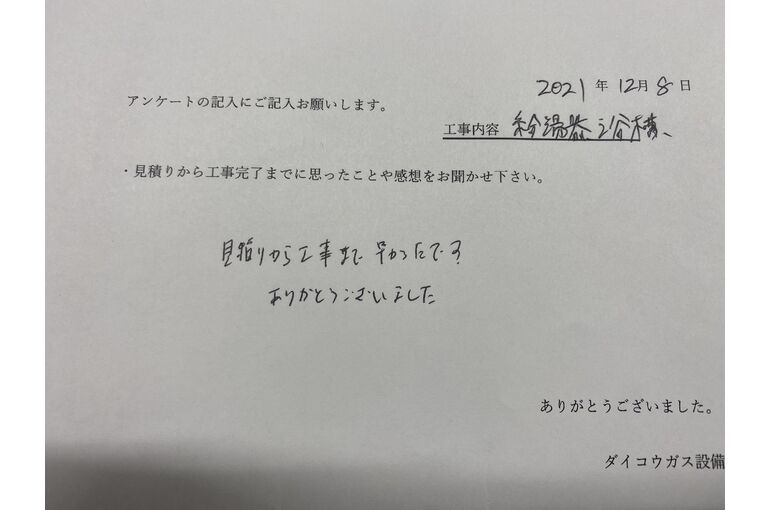 2021年12月8日
アンケートの記入にご記入お願いします。
工事内容 給湯器
・見積りから工事完了までに思ったことや感想をお聞かせ下さい。
見積りから工事まで早かったです
ありがとうございました
ありがとうございました。
ダイコウガス設備